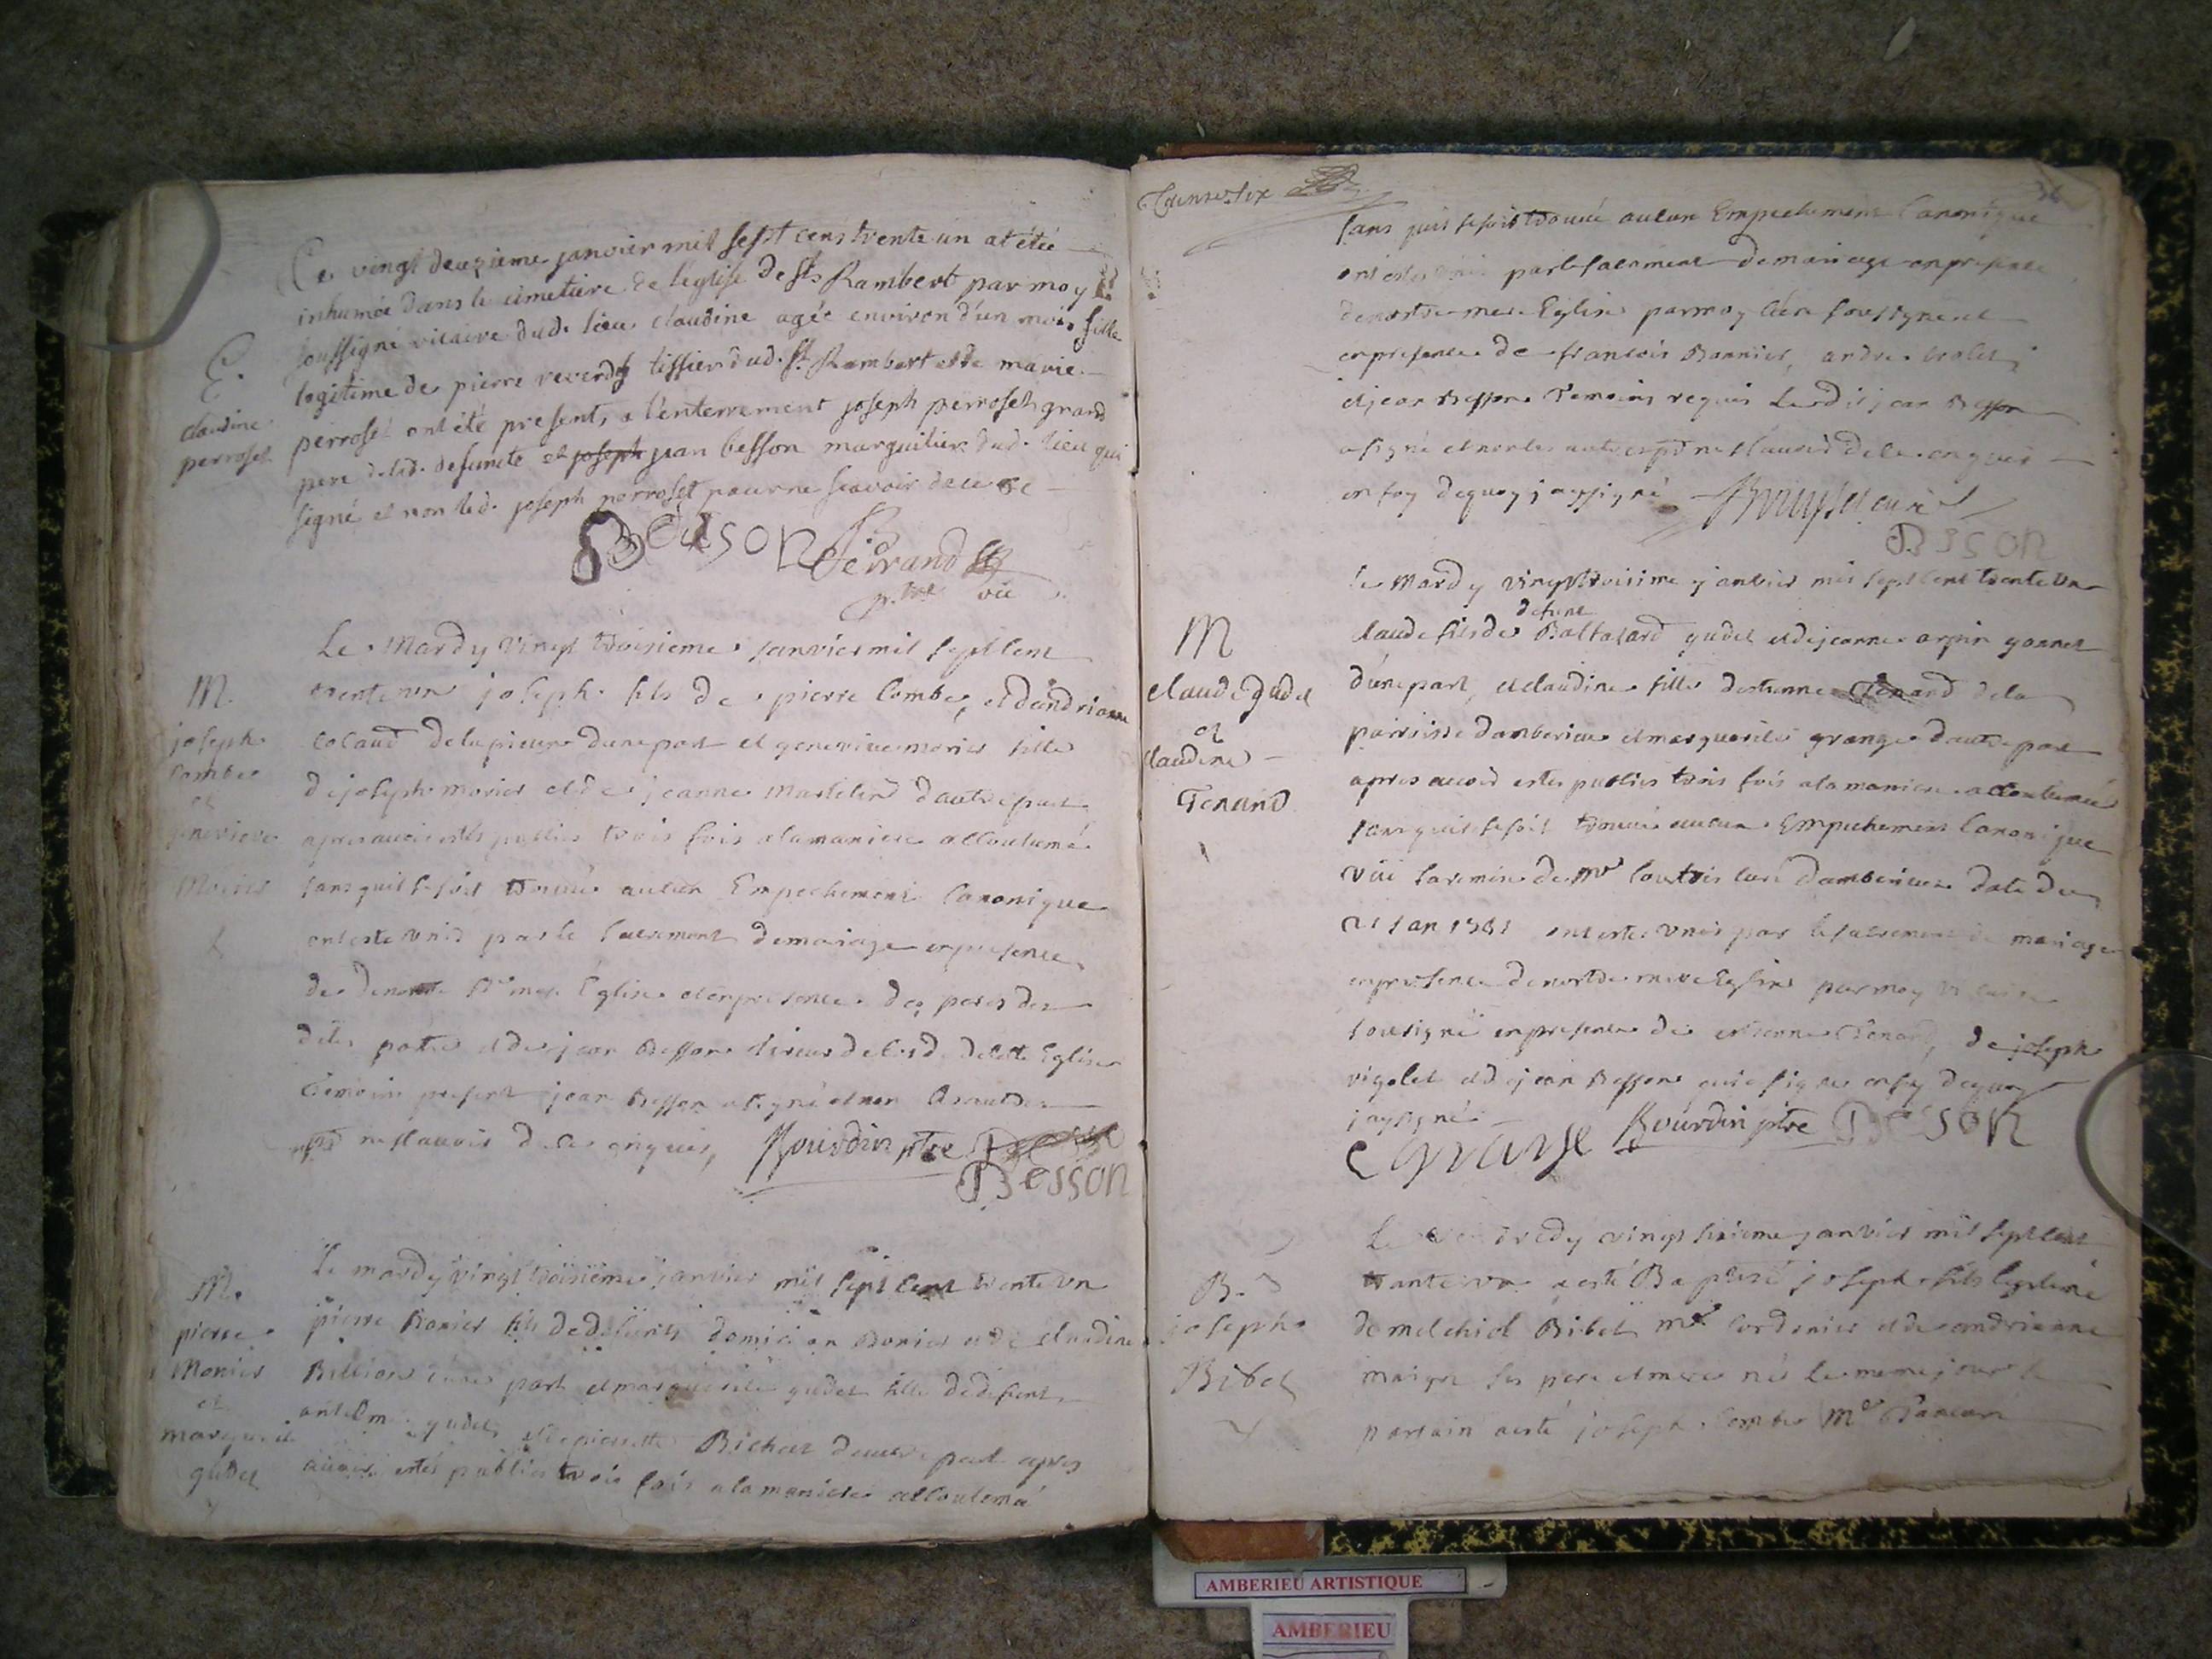 Ce vingt deuzieme janvier mil sept cens trente un at étée
inhumée dans le cimetiere de leglise de St Rambert par moy
soussigné vicaire dud. lieu claudine agée environ d'un mois fille
legitime de pierre reverdy tissier dud. St. Rambert et de marie
perroset ont été presents a l'enterrement joseph perroset grand
pere de lad. defuncte et joseph jean besson marguilier dud. lieu qui
signé et non led. joseph perroset pour ne scavoir de ce
E.
claudine
perroset
Besson Ferrand
ptre vic
M.
joseph
Combe
et
genevieve
Morier
Le Mardy vingt troisieme janvier mil sept cent
trente un joseph fils de pierre Combe, et dandrianne
Cocaud dune part et genevieve morier fille
de joseph morier et de jeanne dautre part
apres avoir estés publies trois fois ala maniere accoutumé
sans quil se soit trouvé aucun Empechement Canonique
ont este unis par le sacrement de mariage en presence
de Ste mere Église et en presence des peres des
dites parties et de jean Besson de cette Eglise
Temoins jean Besson a signé et non les autres
ne scavoir de ce enquis, Bourdin ptre
Besson
M.
pierre
Monier
et
marguerite
gudet
Le mardy vingt troisiéme janvier mil sept cent trente un
pierre fils de defunts et de claudine
Billion dune part et marguerite gudet fille de defunt
antelme gudet et de pierrette Bichat dautre part apres
avoir estés publies trois fois a la maniere accoutumé
Trense six
36
sans quil se soit trouvé aucun Empechement Canonique
ont estes unis par le sacrement de mariage en presence
de nostre mere Eglise par moy Curé soussigné
en presence de francois , andre
et jean Besson Temoins requis Ledit jean Besson
a signé et non les autres pour ne scavoir de ce enquis
en foy de quoy j ay signé curé
Besson
M
claude gudet
et
claudine
Tenand
le Mardy vingt troisieme janvier mil sept cent trente un
defunt
claude fils de Baltasard gudet et de jeanne
dune part, et claudine fille destienne Tenand de la
parroisse damberieu et marguerite grange dautre part
apres avoir estes publies trois fois ala maniere accoutumé
sans quil se soit trouvé aucun Empechement Canonique
de Mr curé damberieu date du
21 jan 1731 ont estes unis par le sacrement de mariage
en presence de nostre mere Eglise par moy vicaire
sousigné en presence de estienne Tenand, de joseph
vigolet et de jean Besson qui a signe en foy de quoy
jay signé
Bourdin ptre Besson
B.
joseph
Bibet
Le vendredy vingt sixieme janvier mil sept cent
trante un a esté Baptisé joseph fils legitime
de melchiol Bibet mre Cordonier et de andrianne
maigre ses pere et mere né le meme jour le
parrain a esté joseph Combe Mre
AMBERIEU ARTISTIQUE
AMBERIEU